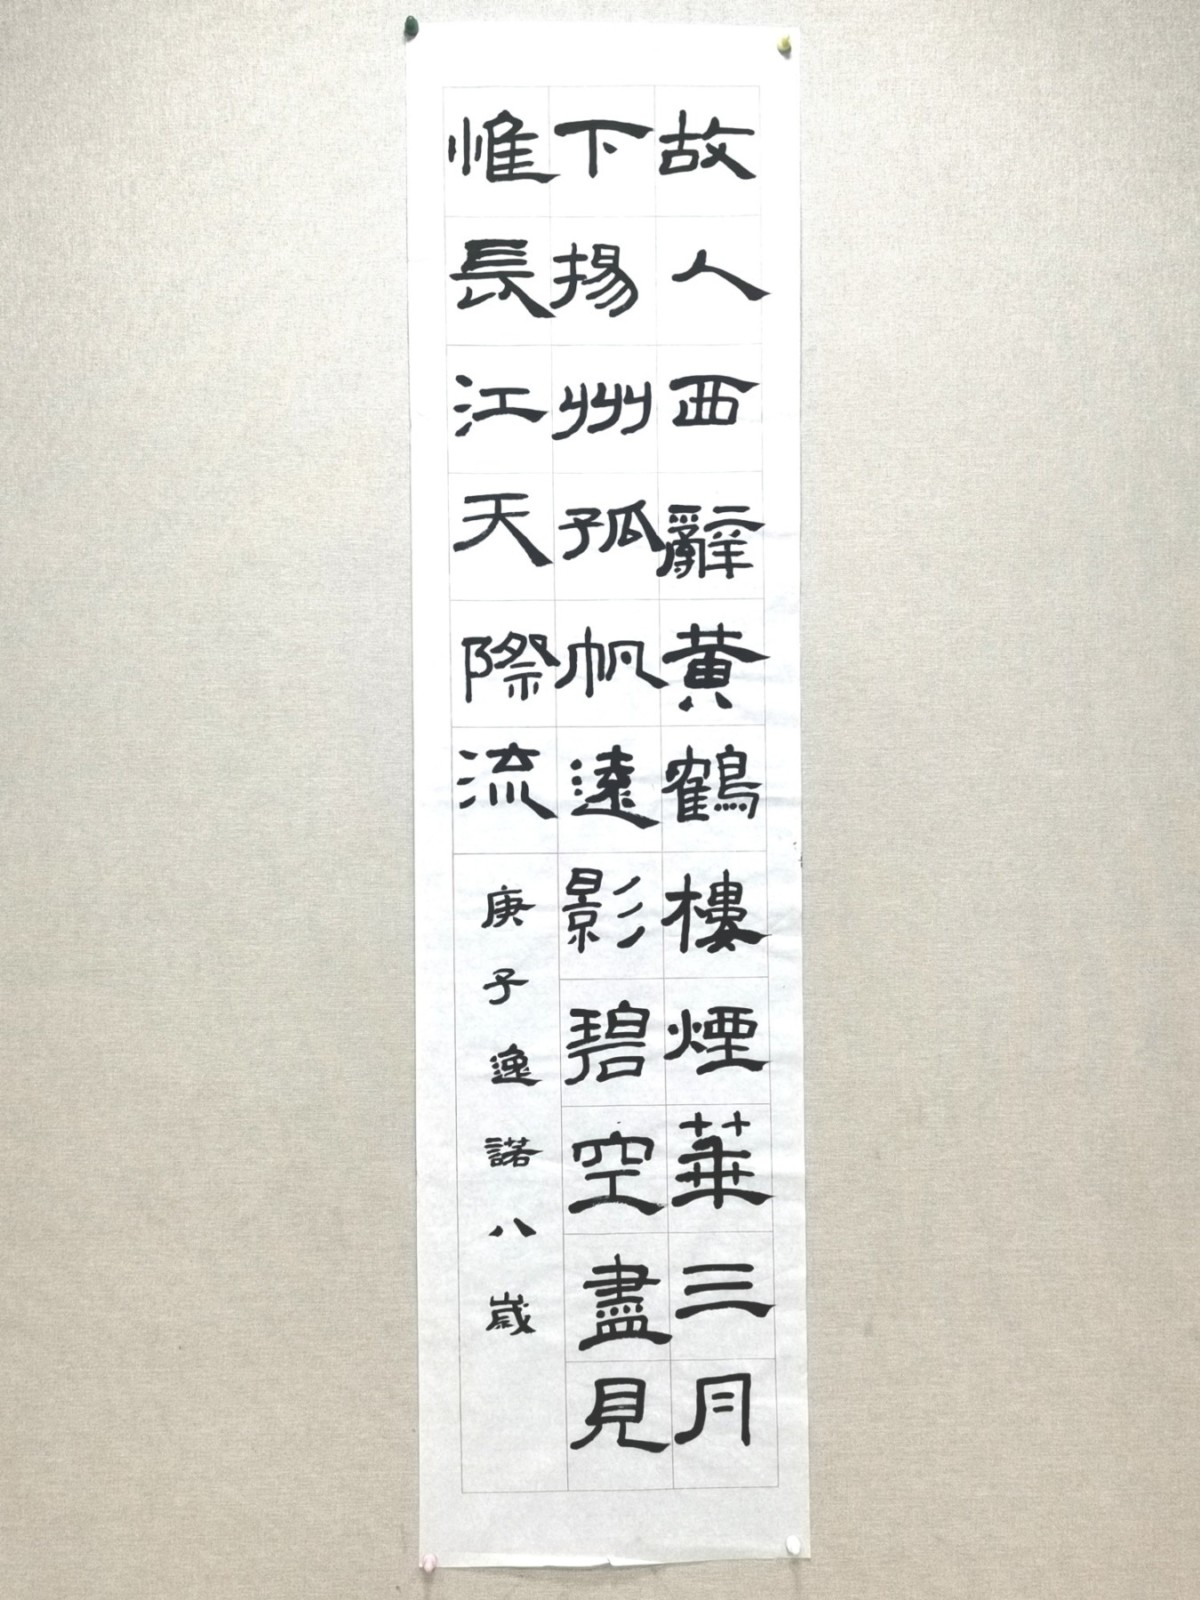 故人西辭黄鶴樓煙華三月
下揚州孤帆遠影碧空盡見
惟長江天際流
庚子逸諾八歲